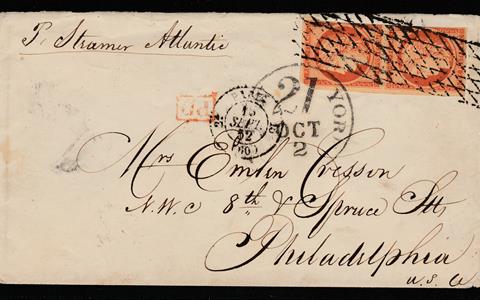 Pr Steamer Atlantic
PD
15
SEPT
52
(60)
YOR
21
OCT
2
Mrs Emlen Cresson
N.W.C 8th & Spruce Stts
Philadelphia
U.S.A